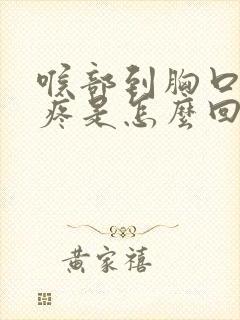 喉部到胸口
疼是怎麼回
黃家禧